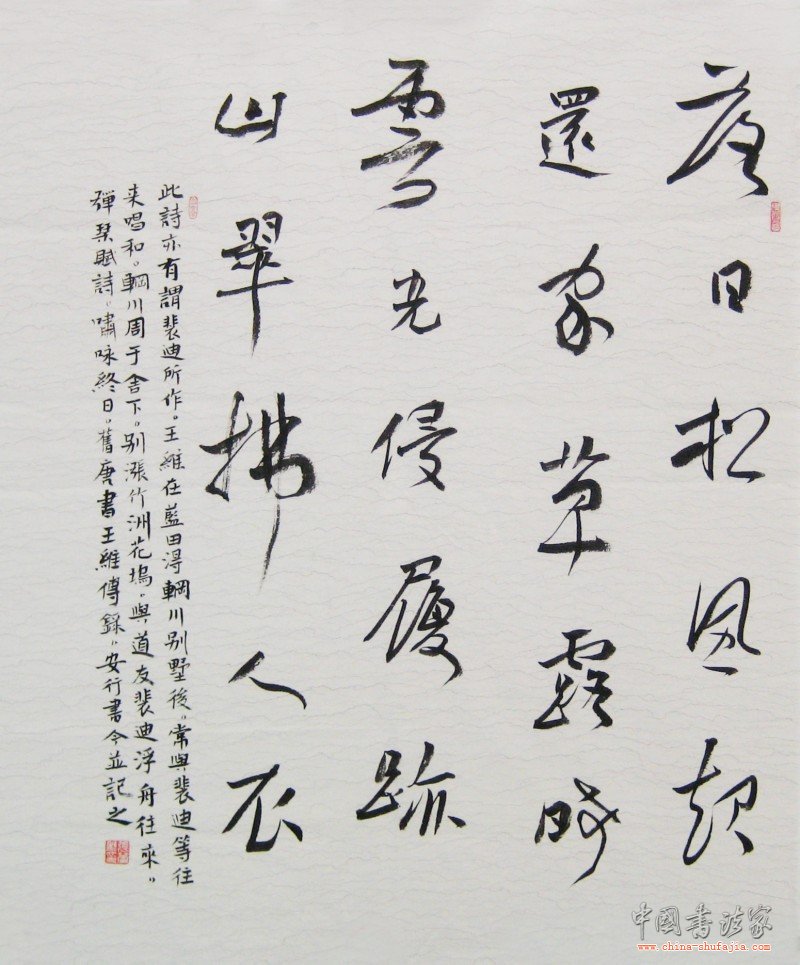 落日松風起
還家草露晞
雲光侵履跡
山翠拂人衣
此詩亦有謂裴迪所作。王維在藍田得輞川别墅後。常與裴迪等往
来唱和。輞川周于舍下。别漲竹洲花塢。與道友裴迪浮舟往來。
彈琴賦詩。嘯咏終日。舊唐書王維傳錄。安行書今並記之
中國書法家
www.china-shufajia.com